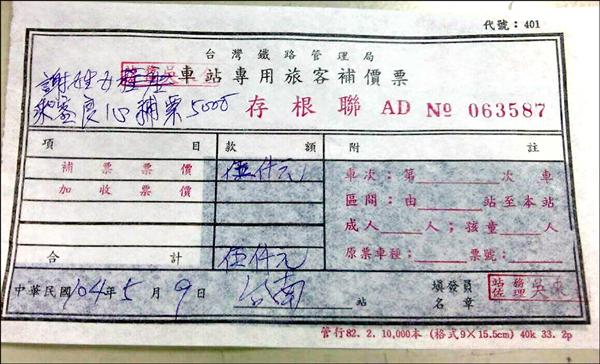 代號：401
台灣鐵路管理局
車站專用旅客補價票
謝姓
乘客良心補票5000
存根聯 AD № 063587
項目 款額 附註
補票票價 伍仟元 車次：第 次車
加收票價 區間：由 站至本站
成人 人；孩童 人
合計 伍仟元 原票車種： 票號：
中華民國104年5月9日 台南 站 填發員名章 站務佐理 吳
管行82. 2. 10,000本 (格式9×15.5cm) 40k 33. 2p